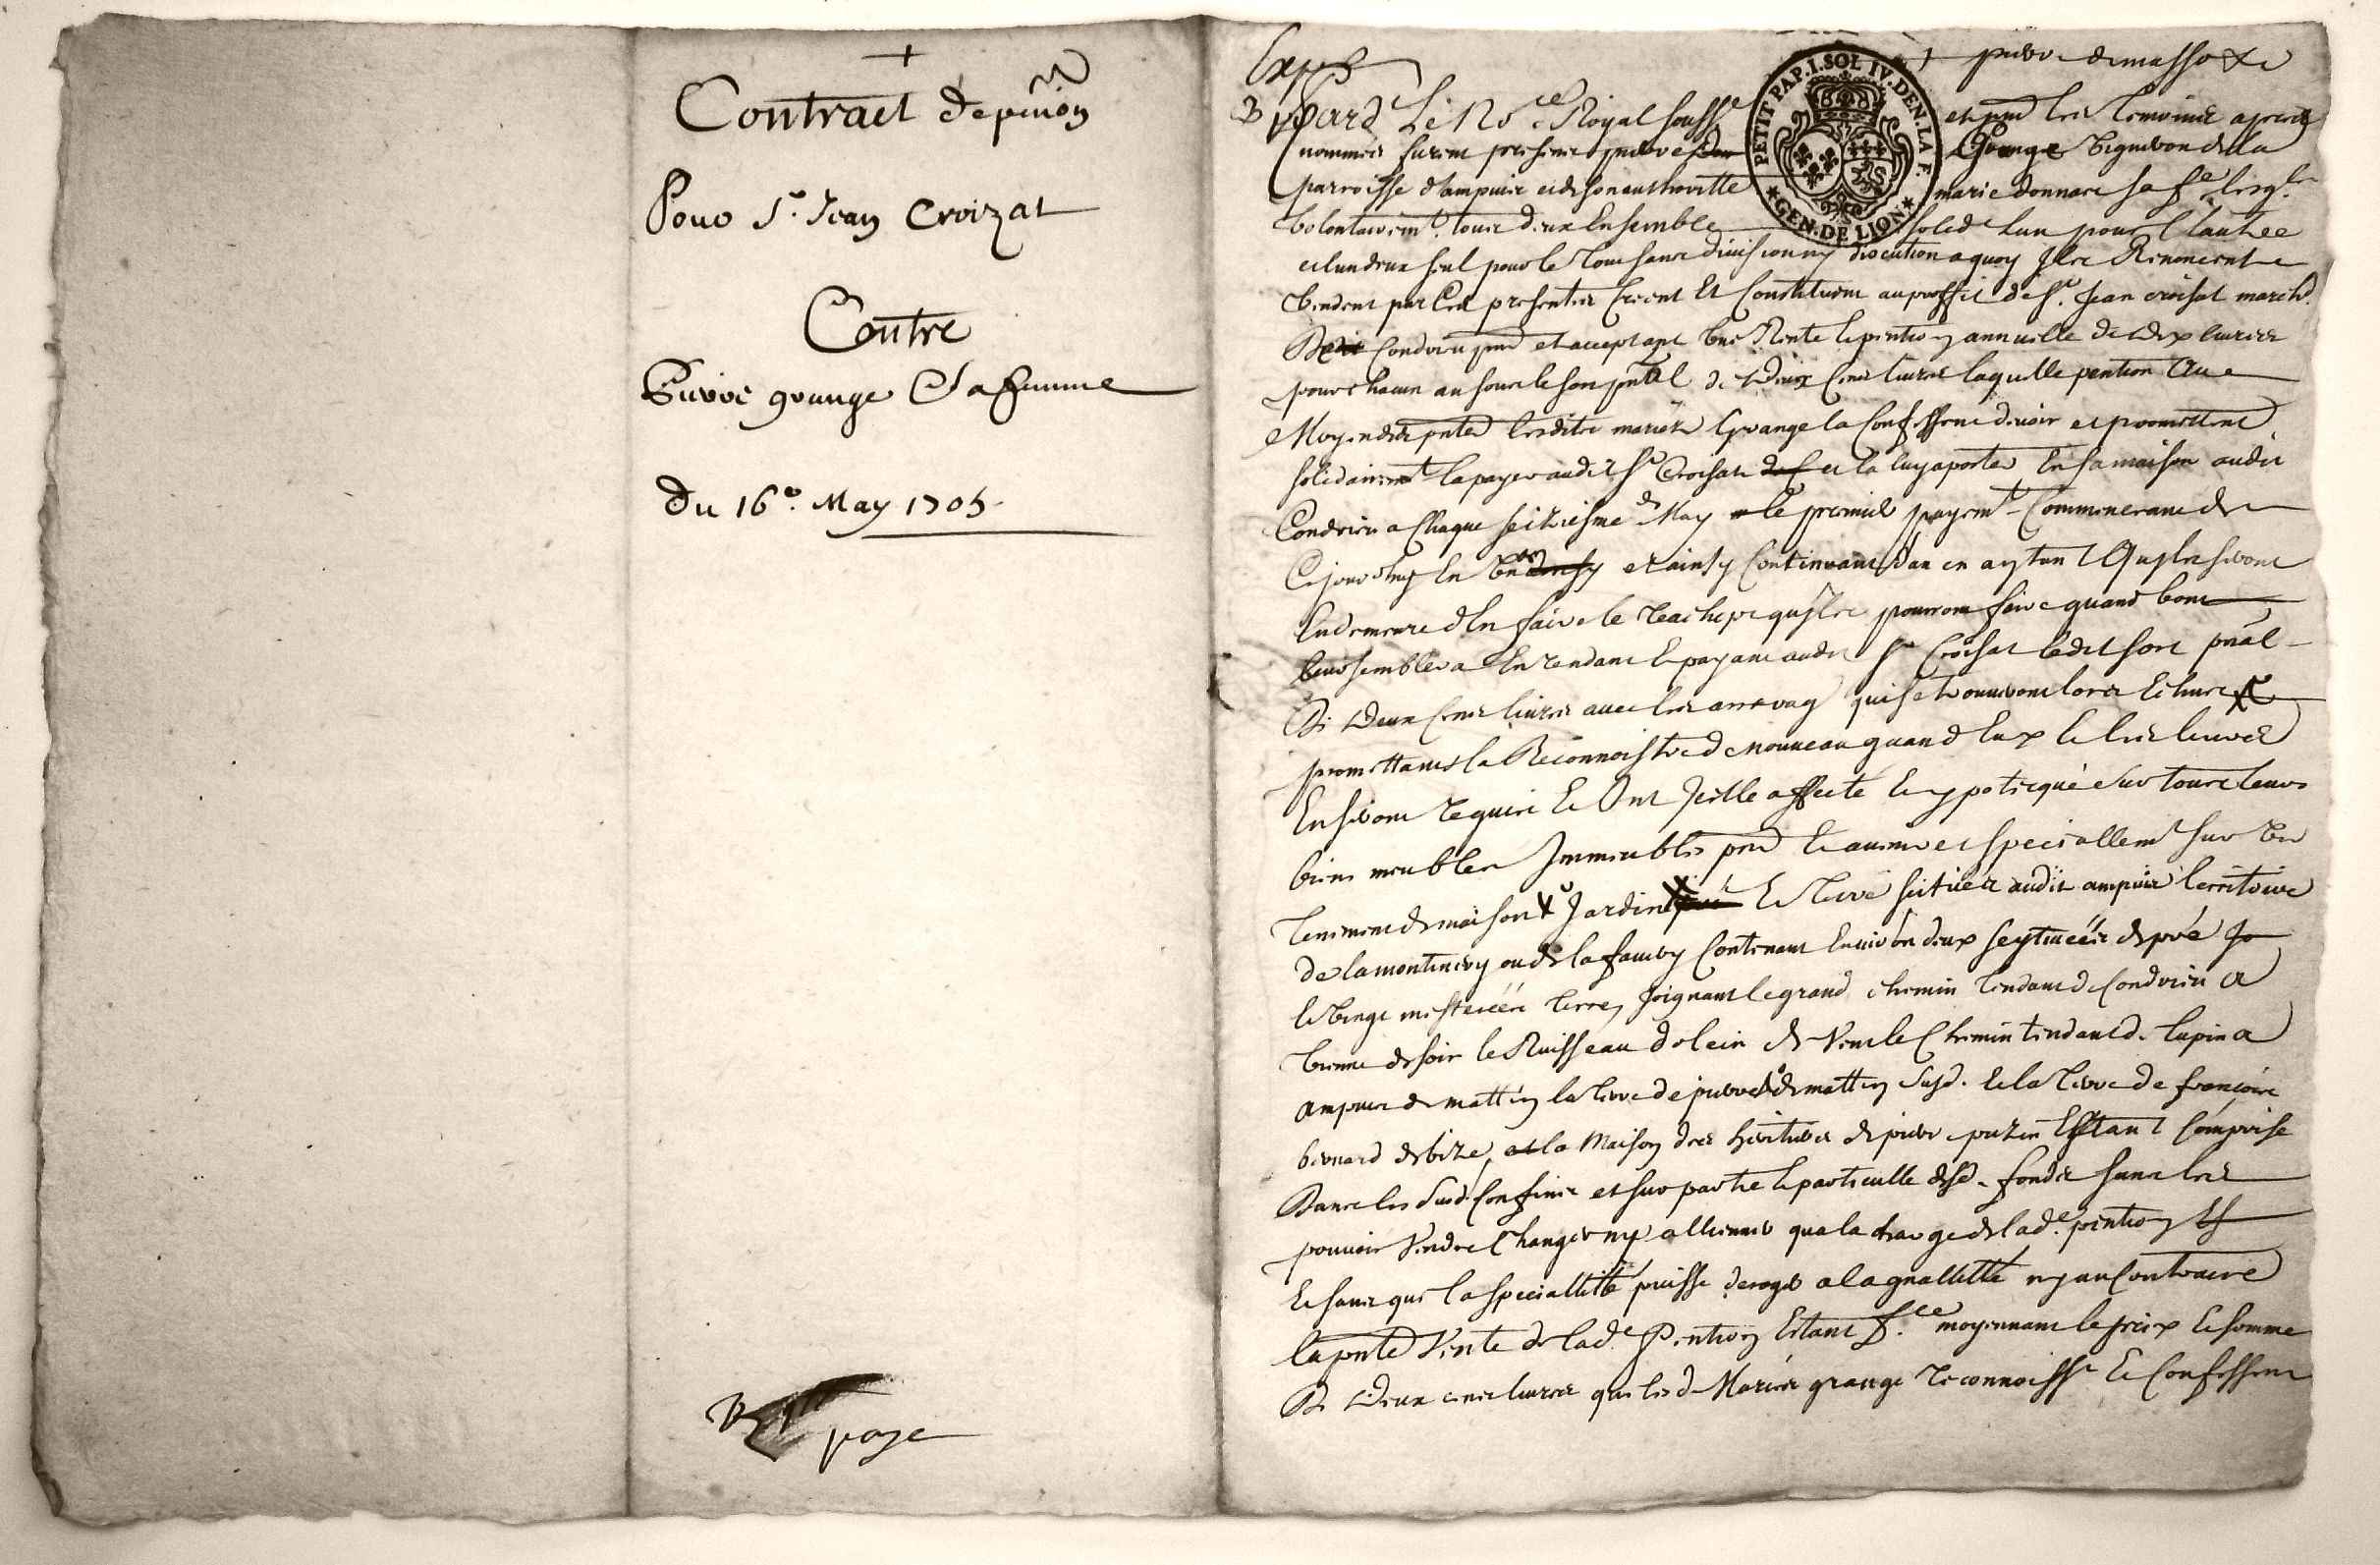 Contract de pention
Pour Sr. Jean Croizat
Contre
Pierre grange & Sa femme
Du 16e. May 1705.
paye
PETIT PAP. I. SOL IV. DEN. LA F. GEN. DE LION
Par dt. Le No.re Royal soubsé et pnt les temoins apres
nommes furent presents pierre Grange Vigneron de la
parroisse dampuis et de son authoritte marie donnare sa fe. lesqls.
volontairemt. tous deux Ensemble solid. lun pour l'autre
et lun deux seul pour le tout sans division ny discution a quoy Ils Renoncent
Vendent par Ces presentes Créent Et Constituent au proffit de Sr. Jean croisat marchd.
De Condrieu pnt et acceptant une Rente & pention annuelle de dix livres
pour chacun an sous le sort pnal de Deux Cens livres laquelle pention Au
Moyen des pntes lesdits mariés Grange la Confessent devoir et promettent
solidairemt la payer audit Sr Croisat et la luy aporter En sa maison audit
Condrieu a Chaque seiziesme de May le premier payemt Commencant de
Ce jourdhuy En un an et ainsy Continuant dan en an tant Quils seront
En demeure dEn faire le reachept quils pourront faire quand bon
leur semblera En rendant & payant audit Sr Croisat ledit sort pnal
De Deux Cens livres avec les arrerag qui se trouveront lors Echus &
promettant la Reconnoistre de nouveau quand Eux & les leurs
En seront requis Et Ont Icelle affecté & ypotiqué Sur tous leurs
biens meubles Immeubles pnts & avenir et speciallemt sur un
tenement de maison Jardin & Terre scitués audit ampuis territoire
de la montinery ou de la faury Contenant Environ deux seytivées de pré
& Vingt mesterées terre, Joignant le grand chemin tendant de Condrieu a
Vienne de soir le Ruisseau dolein de Vent le Chemin tendant de tupin a
ampuis de mattin la terre de pierre demattin Susd. & la terre de francois
bernard de bize, et la Maison des heritiers de pierre puzin Estant Comprise
Dans les Susd. Confins et sur partie & particulle desd. fonds sans les
pouvoir Vendre Changer ny alliener qua la charge de lad.e pention
& sans que la speciallitté puisse deroger a la gnallitté ny au Contraire
la pnte Vente de lad.e Pention Estant f.ce moyennant le prix & somme
De Deux cens livres que lesd. Mariés grange reconnoisst & Confessent